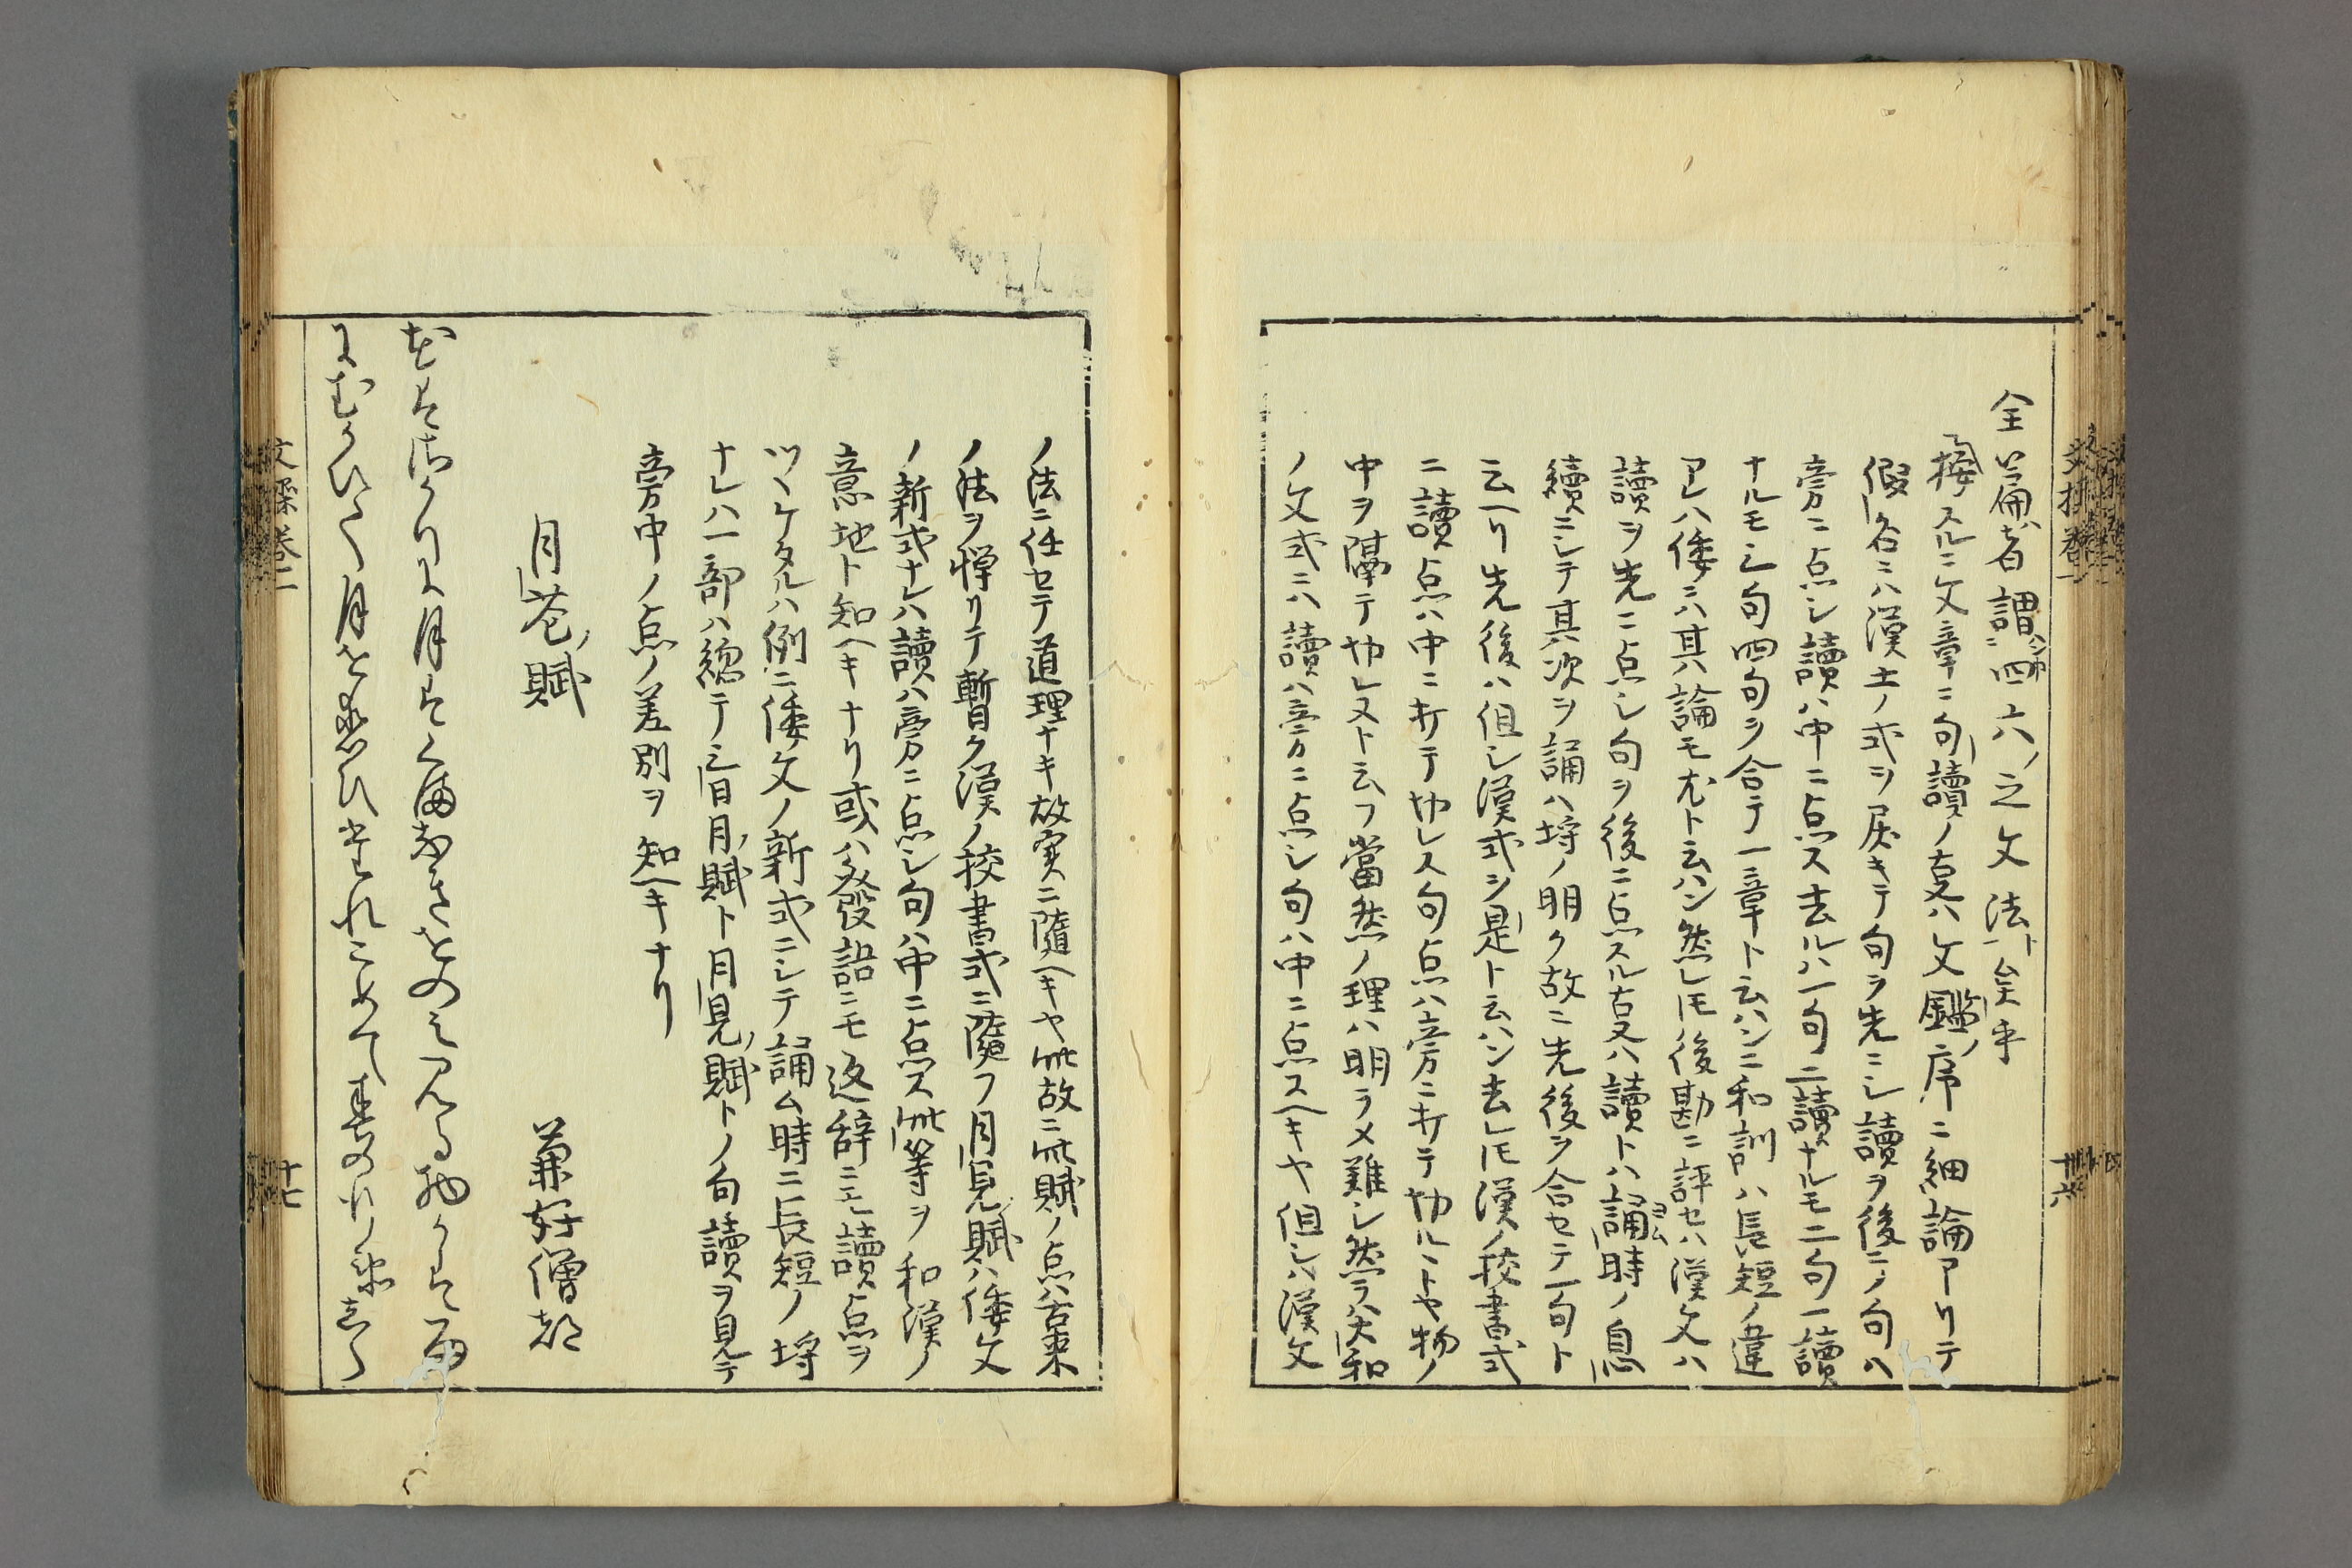 全篇者謂四六之文法矣乎
按スルニ文章ニ句讀ノ夏ハ文鑑ノ序ニ細論アリテ
假名ニハ漢土ノ式ヲ戻キテ句ヲ先ニシ讀ヲ後ニノ句ハ
旁ニ点シ讀ハ中ニ点ス去ルハ一句二讀ナルモ二句一讀
ナルモシ句四句ヲ合テ一章ト云ハンニ和訓ハ長短ノ違
アレハ倭ニハ其論モ尤ト云ハン然レ𪜈後勘ニ評セハ漢文ハ
讀ヲ先ニ点シ句ヲ後ニ点スル古又ハ讀トハ誦ヨム時ノ息
續ニシテ其次ヲ誦ハ埒ノ明ク故ニ先後ヲ合セテ一句ト
云ヘリ先後ハ但シ漢式ヲ是ト云ハン去レ𪜈漢ノ校書式
ニ讀点ハ中ニ有テ切レス句点ハ旁ニ有テ切ルヽトヤ物ノ
中ヲ隔テ切レスト云フ當然ノ理ハ明ラメ難シ然ラハ矢和
ノ文式ニハ讀ハ旁ニ点シ句ハ中ニ点スヘキヤ但シハ漢文
ノ法ニ任セテ道理ナキ故実ニ隨ヘキヤ此故ニ此賦ノ点ハ古来
ノ法ヲ憚リテ暫ク漢ノ校書式ニ隨フ月見ノ賦ハ倭文
ノ新式ナレハ讀ハ旁ニ点シ句ハ中ニ点ス此等ヲ和漢ノ
意地ト知ヘキナリ或ハ發語ニモ返辞ニモ讀点ヲ
ツヽケタルハ例ニ倭文ノ新式ニシテ誦ム時ニ長短ノ埒
ナレハ一部ハ總テ之百月ノ賦ト月見ノ賦トノ句讀ヲ見テ
旁中ノ点ノ差別ヲ知ヘキナリ
月花ノ賦
兼好僧都
花はさかりに月はくまなきをのみ見る物かは雨
にむかひて月を恋ひたれこめて春の行衛しら
文操巻二
十七